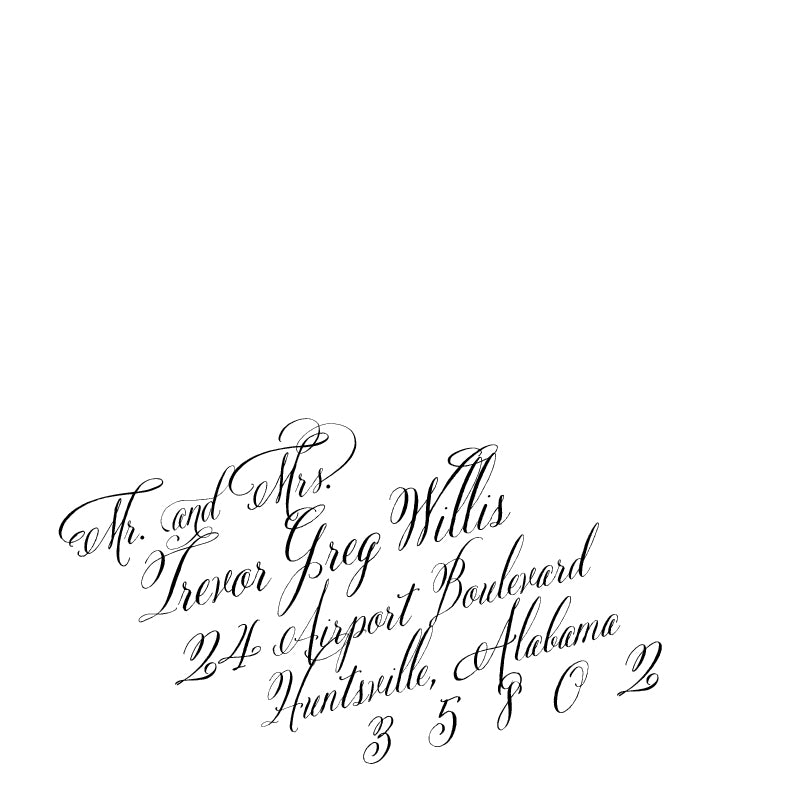 Mr. and Mrs.
Trevor Greg Willis
24 Airport Boulevard
Huntsville, Alabama
35802